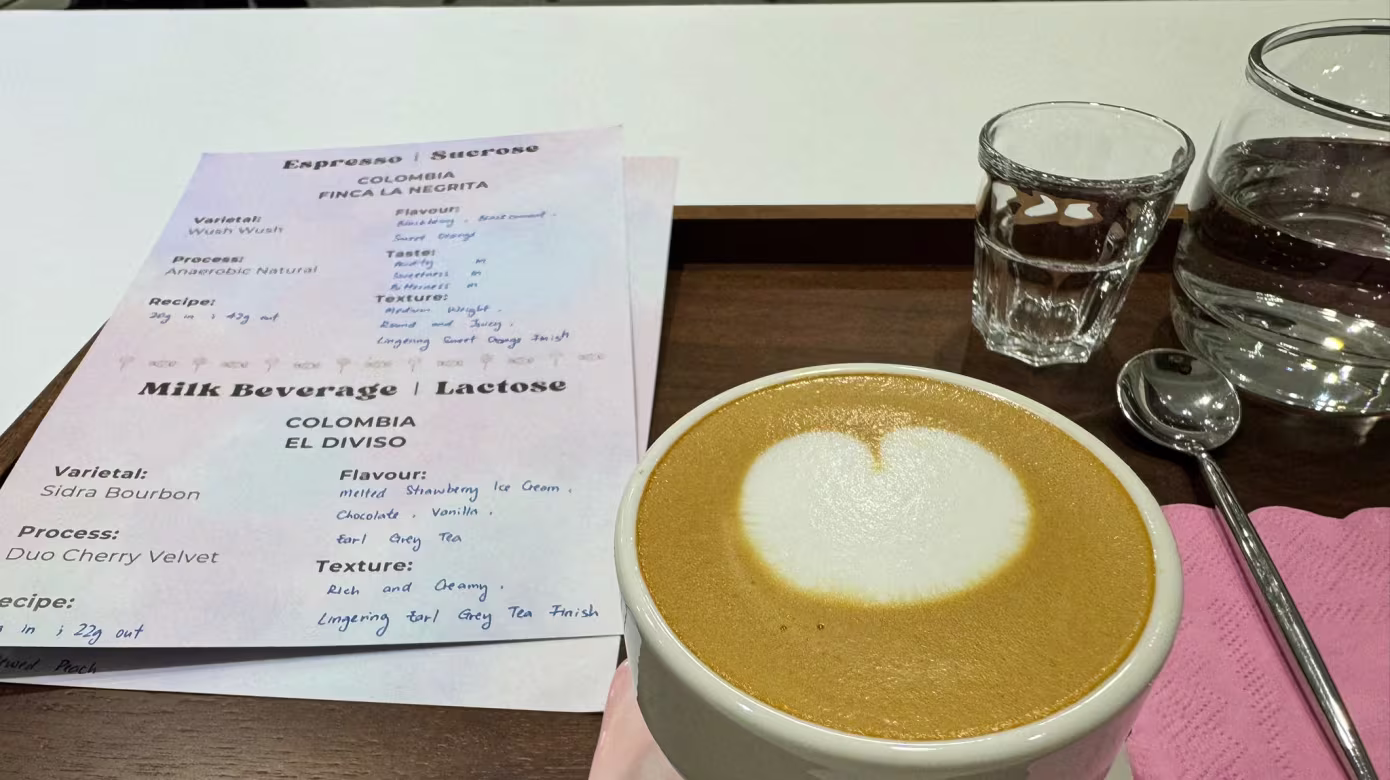 Espresso | Sucrose
COLOMBIA
FINCA LA NEGRITA
Varietal:
Wush Wush
Process:
Anaerobic Natural
Recipe:
20g in ; 42g out
Flavour:
Blackberry , Blackcurrant .
Sweet Orange
Taste:
Acidity m
Sweetness m
Bitterness m
Texture:
Medium Weight .
Round and Juicy .
Lingering Sweet Orange Finish
Milk Beverage | Lactose
COLOMBIA
EL DIVISO
Varietal:
Sidra Bourbon
Process:
Duo Cherry Velvet
ecipe:
in ; 22g out
Flavour:
Melted Strawberry Ice Cream .
Chocolate , Vanilla .
Earl Grey Tea
Texture:
Rich and Creamy .
Lingering Earl Grey Tea Finish
Peach